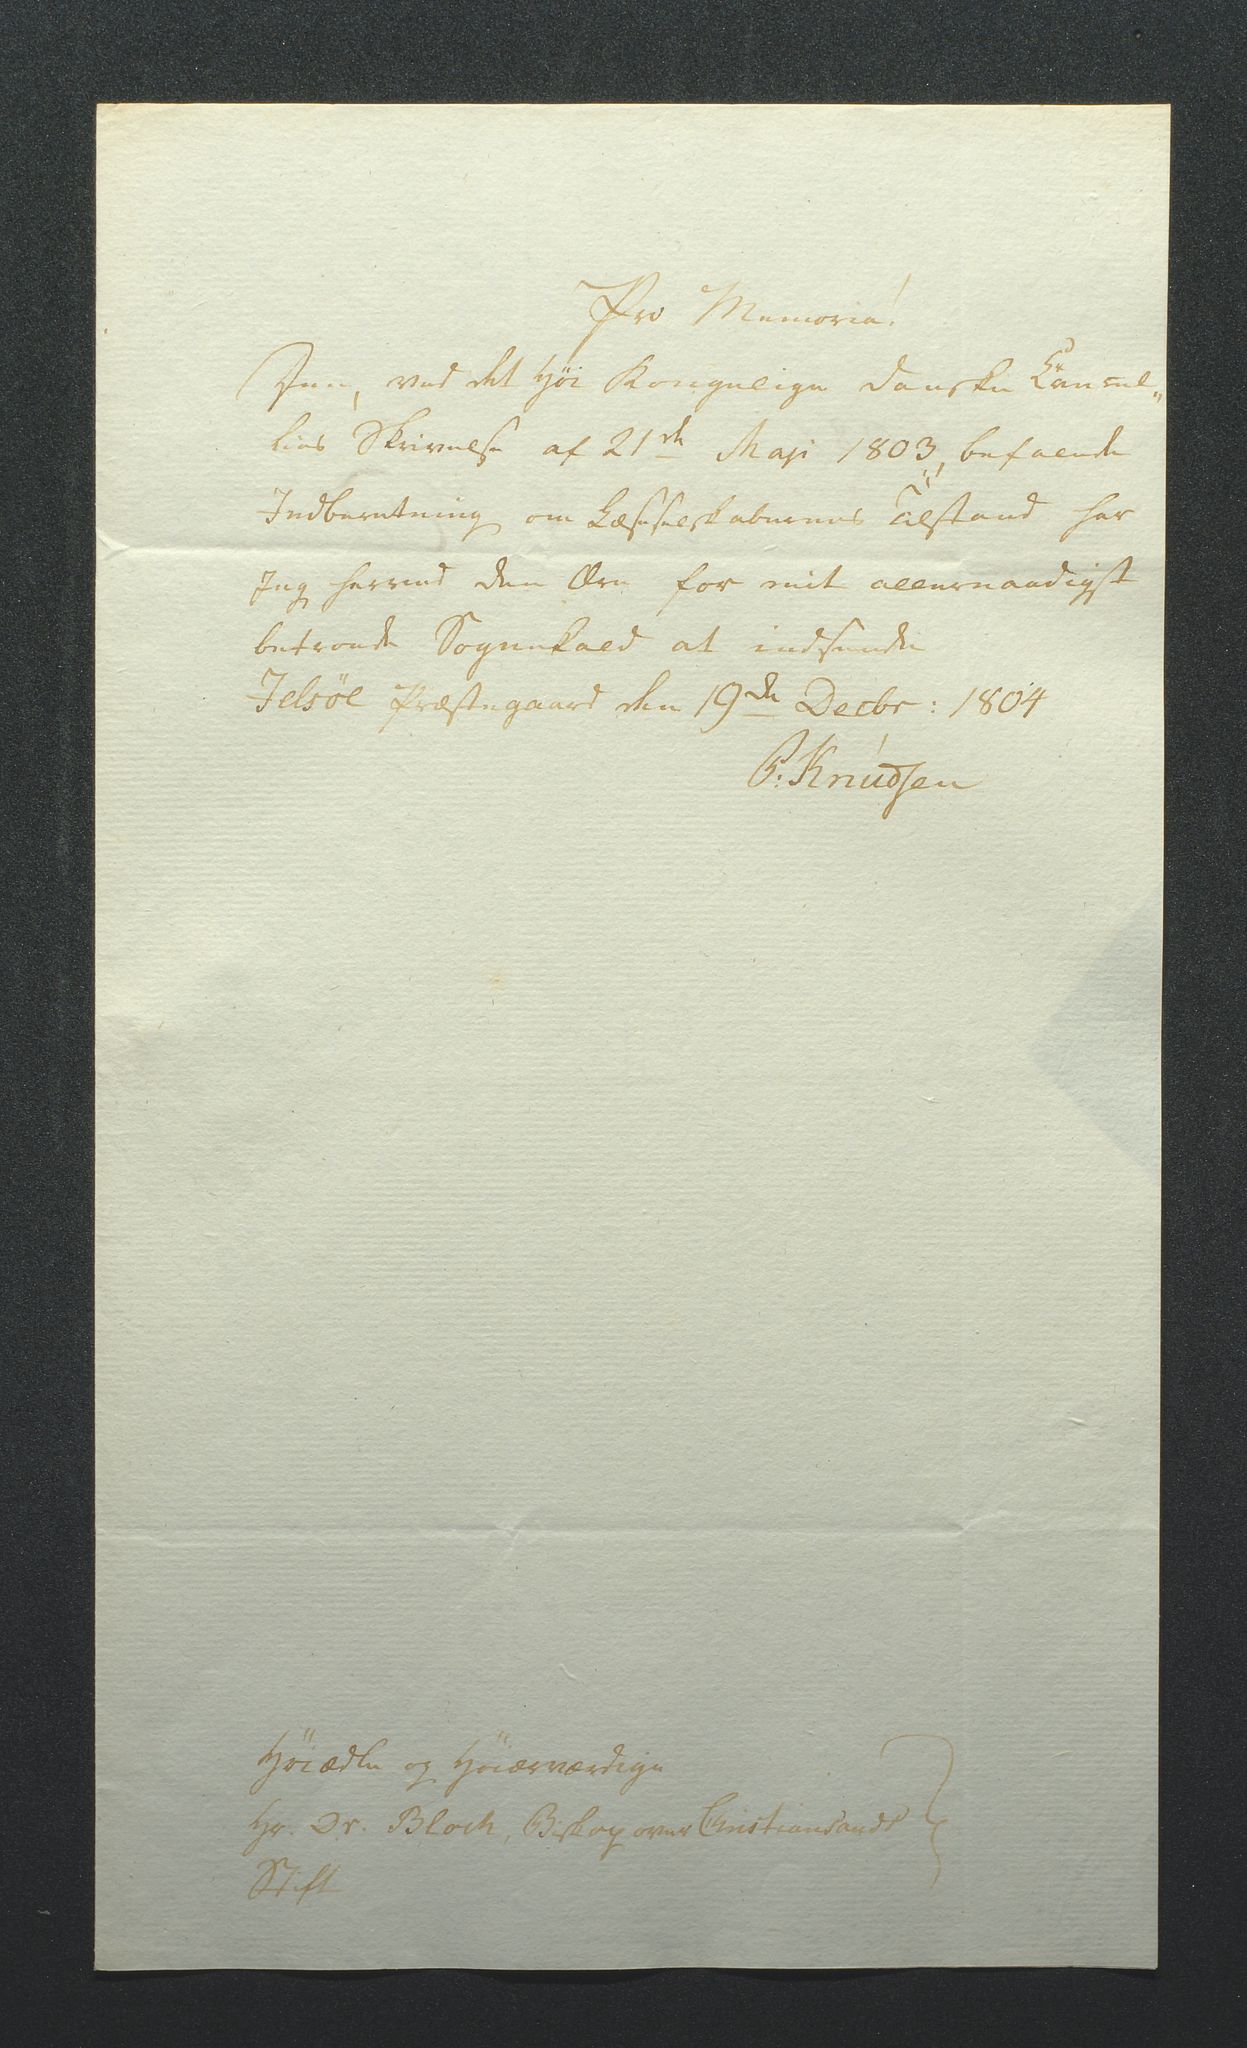 Pro Memoria!
Den, ved det höi Kongelige danske Cancel„
lies Skrivelse af 21de Maji 1803, befalede
Indberetning om Læseselskabernes Tilstand har
Jeg herved den Ære for mit allernaadigst
betroede Sognekald at indsende
Jelsöe Præstegaard den 19de Decbr: 1804
P. Knudsen
Höiædle og Höiærværdige
Hr. Dr. Bloch, Biskop over Christiansands
Stift